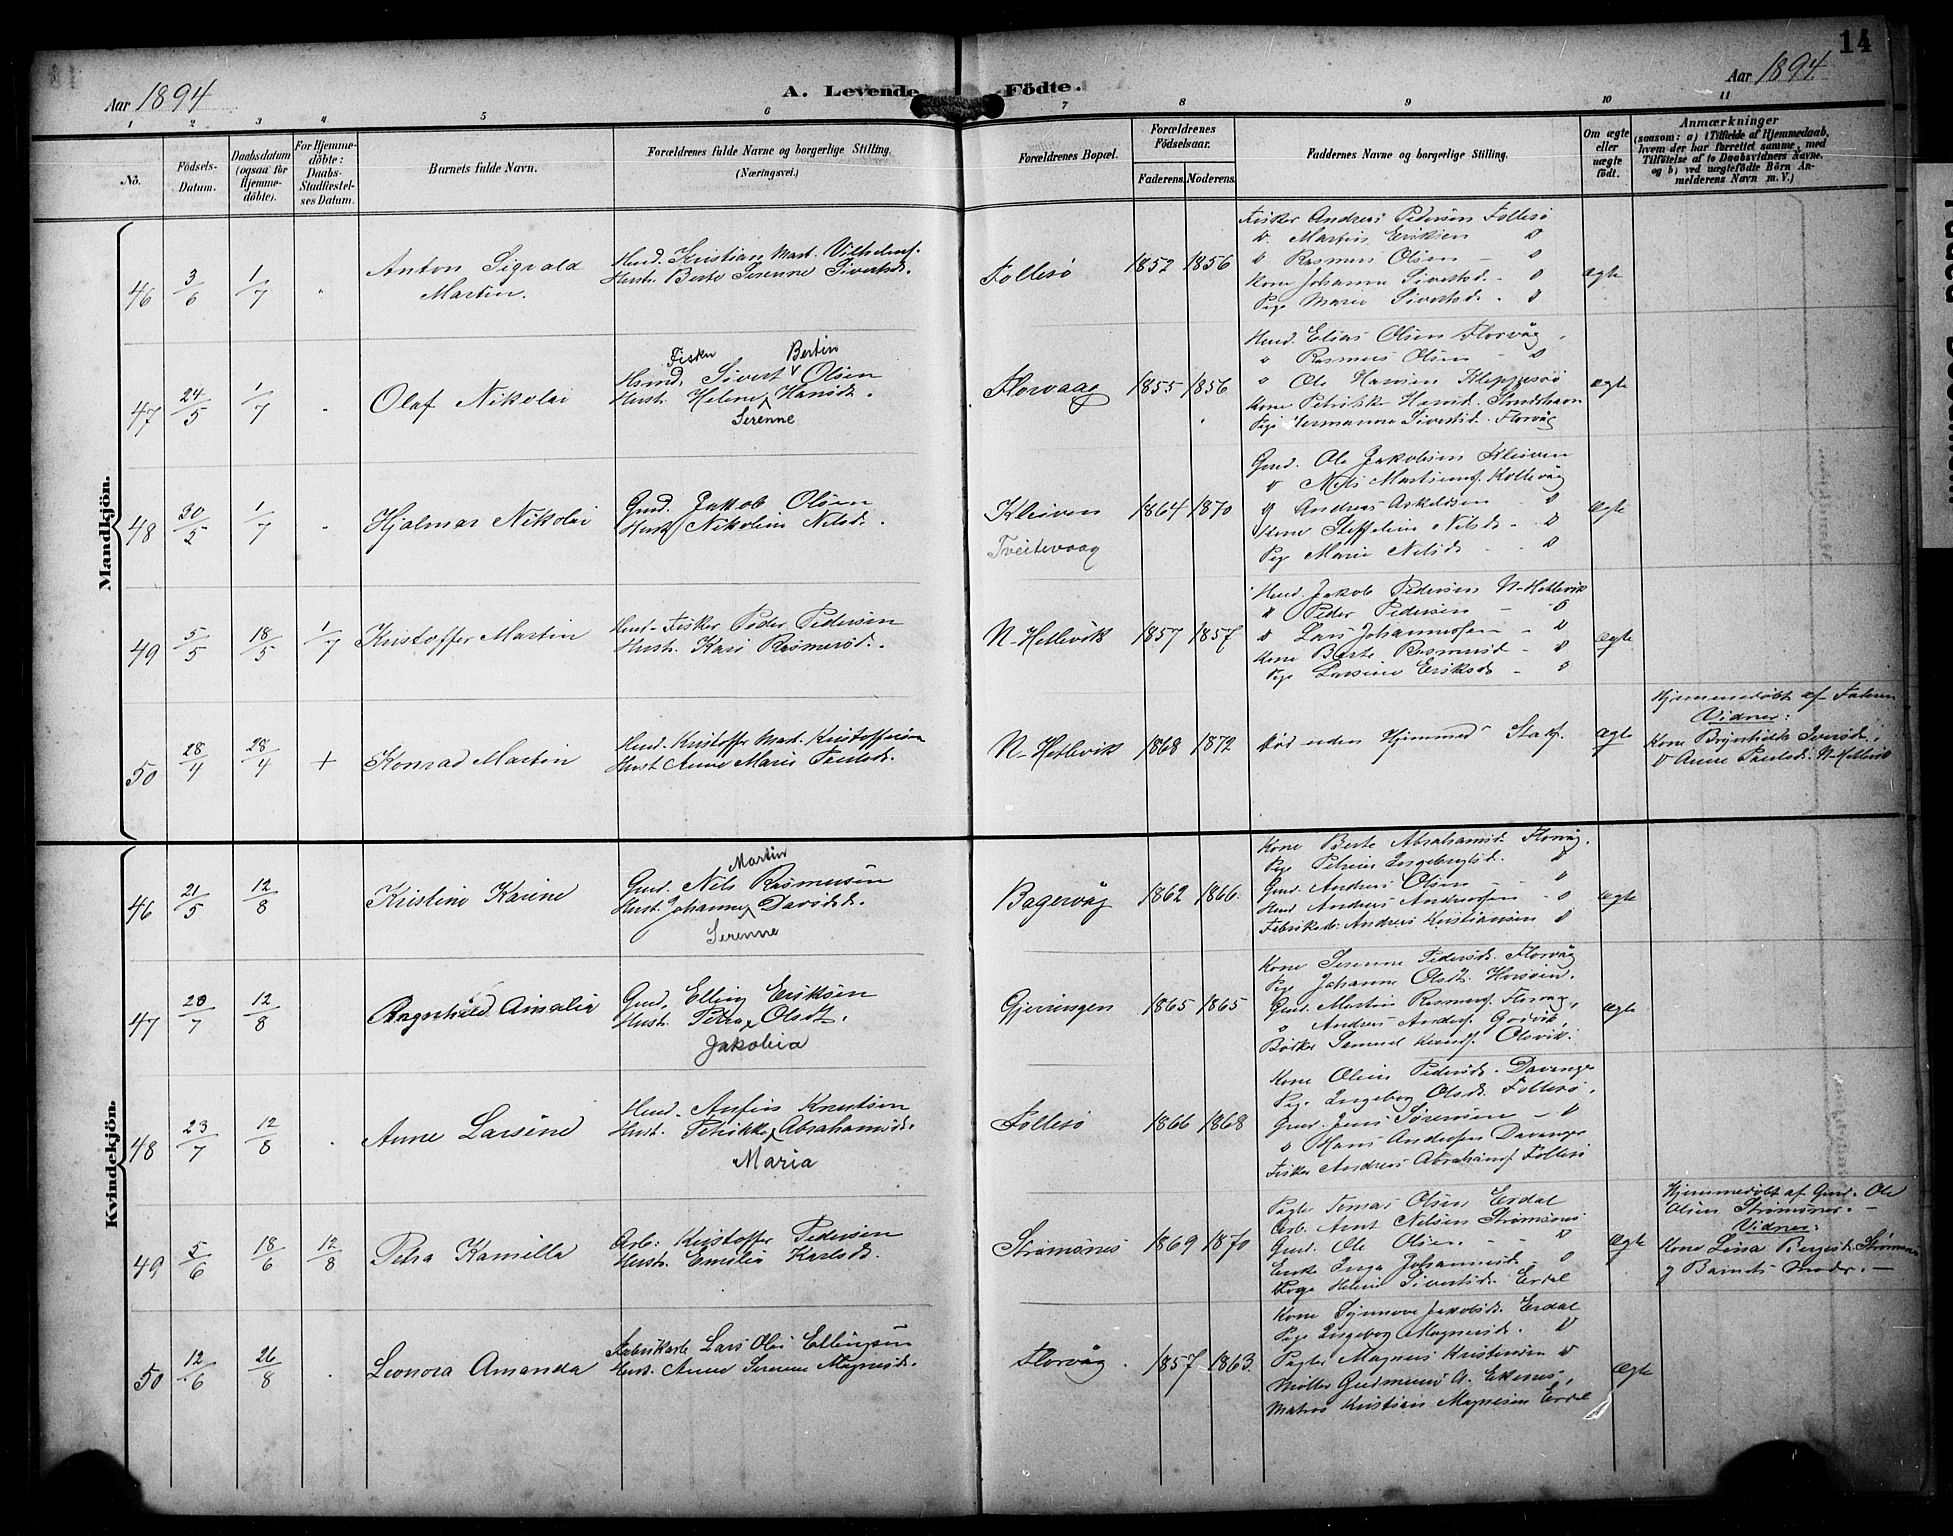 14
Aar 1894
A. Levende Födte.
Aar 1894
1 2 3 4 5 6 7 8 9 10 11
No.
Födsels-Datum.
Daabsdatum (ogsaa for Hjemme-döbte).
For Hjemme-döbte: Daabs-Stadfæstel-ses Datum.
Barnets fulde Navn.
Forældrenes fulde Navne og borgerlige Stilling.
(Næringsvei.)
Forældrenes Bopæl.
Forældrenes Födselsaar.
Faderens. Moderens.
Faddernes Navne og borgerlige Stilling.
Om ægte eller uægte födt.
Anmærkninger
(saasom: a) i Tilfælde af Hjemmedaab, hvem der har forrettet samme, med Tilföielse af to Daabsvidners Navne, og b) ved uægtefödte Börn An-melderens Navn m. V.)
Mandkjön.
46 3/6 1/7 "
Anton Sigvald
Martin.
Husm. Kristian Mart. Vilhelms.
Hust. Berte Serenne Sivertsd.
Follesö 1852 1856
Fisker Andreas Pedersen Follesö
D. Martin Eriksen D
D Rasmus Olsen - D
Kone Johanne Sivertsd. - D
Pige Marie Sivertsd. D
ægte
47 24/5 1/7 "
Olaf Nikolai
Fisker Bertin
Husmd. Sivert Olsen
Hust. Helene Hansd.
Serenne
Florvaag 1855 1856
Husmd. Elias Olsen Florvåg
" Rasmus Olsen - D
" Ole Hansen Kleppesö
Kone Petrikke Hansd.
Pige Hermanne Sivertsd. Florvåg
ægte
48 30/5 1/7 "
Hjalmar Nikolai
Gmd. Jakob Olsen
Hust. Nikoline Nilsd.
Kleiven
Tveitevaag
1864 1870
Gmd. Ole Jakobsen Kleiven
D Nils Martinus. Kollevåg
Andreas Askeldsen D
Kone Steffeline Nilsd. - D
Pige Marie Nilsd. - D
ægte
49 5/5 18/5 1/7
Kristoffer Martin
Husm. Fisker Peder Pedersen
Hust. Kari Rasmusd.
N-Hetlevik 1857 1857
Husmd. Jakob Pedersen N-Hetlevik
" Peder Pedersen - D
D Lars Johannessen - D
Kone Berte Rasmusd. - D
Pige Larsine Eriksd. - D
ægte
50 28/4 28/4 +
Konrad Martin
Husmd. Kristoffer Mart. Kristoffersen
Hust. Anne Marie Paulsd.
N-Hetlevik 1868 1872
Död uden Hjemmed. Stadf.
ægte
Hjemmedöbt af Faderen
Vidner:
Kone Brynhilde Iversd.
D Anne Paulsd. N-Hetlevik
Kvindekjön.
46 21/5 12/8
Kristine Karine
Martin
Gmd. Nils Rasmusen
Hust. Johanne Davidsd.
Serenne
Bagervåg 1862 1866.
Kone Berte Abrahamsd. Florvåg.
Pige Petrine Ingebrigtsd. D
Gmd. Andreas Olsen - D
Husmd Andreas Andersen - D
Fabriksarb. Andreas Kristiansen D
ægte
47 20/7 12/8
Ragnhild Amalia
Gmd. Elling Eriksen
Hust. Petra Olsdt.
Jakobia
Gjerningen 1865 1865
Kone Serenne Pedersd. Florvåg
Pige Johanne Olsdt. Horsöin.
Gmd. Martin Rasmus. Florvag,
" Andreas Anders. Godvik,
Bödker Samuel Olsvik.
ægte
48 23/7 12/8 "
Anne Larsine
Husmd. Anfin Knutsen
Hust. Petrikke Abrahamsd.
Maria
Follesö 1866 1868
Kone Oline Pedersd. Davanger
Pige Ingeborg Olsd. Follesö.
Gmd. Jens Sörensen - D
D Hans Andersen Davanger
Fisker Andreas Abrahams. Follesö
49 5/6 18/6 12/8
Petra Kamilla
Arb. Kristoffer Pedersen
Hust. Emilie Karlsd.
Strømsnes 1869 1870
Pagter Tomas Olsen Erdal
Arb. Arnt Nilsen Strømsnes
Gmd. Ole Olsen - D
Enke Inga Johannesd. D
Pige Helene Sivertsd. Erdal
ægte
Hjemmedöbt af Gmd. Ole
Olsen Strømsnes. -
Vidner:
Kone Lina Bergesd. Strømsnes
og Barnets Moder. -
50 12/6 26/8 "
Leonora Amanda
Fabrikarb. Lars Olai Ellingsen
Hust. Anne Serenne Magnusd.
Florvåg. 1857 1863.
Kone Synnove Jakobsd. Erdal
Pige Ingeborg Magnusd. D
Pagter Magnus Kristensen D
Møller Gudmund A. Ekenes,
Matros Kristian Magnesen Erdal
ægte